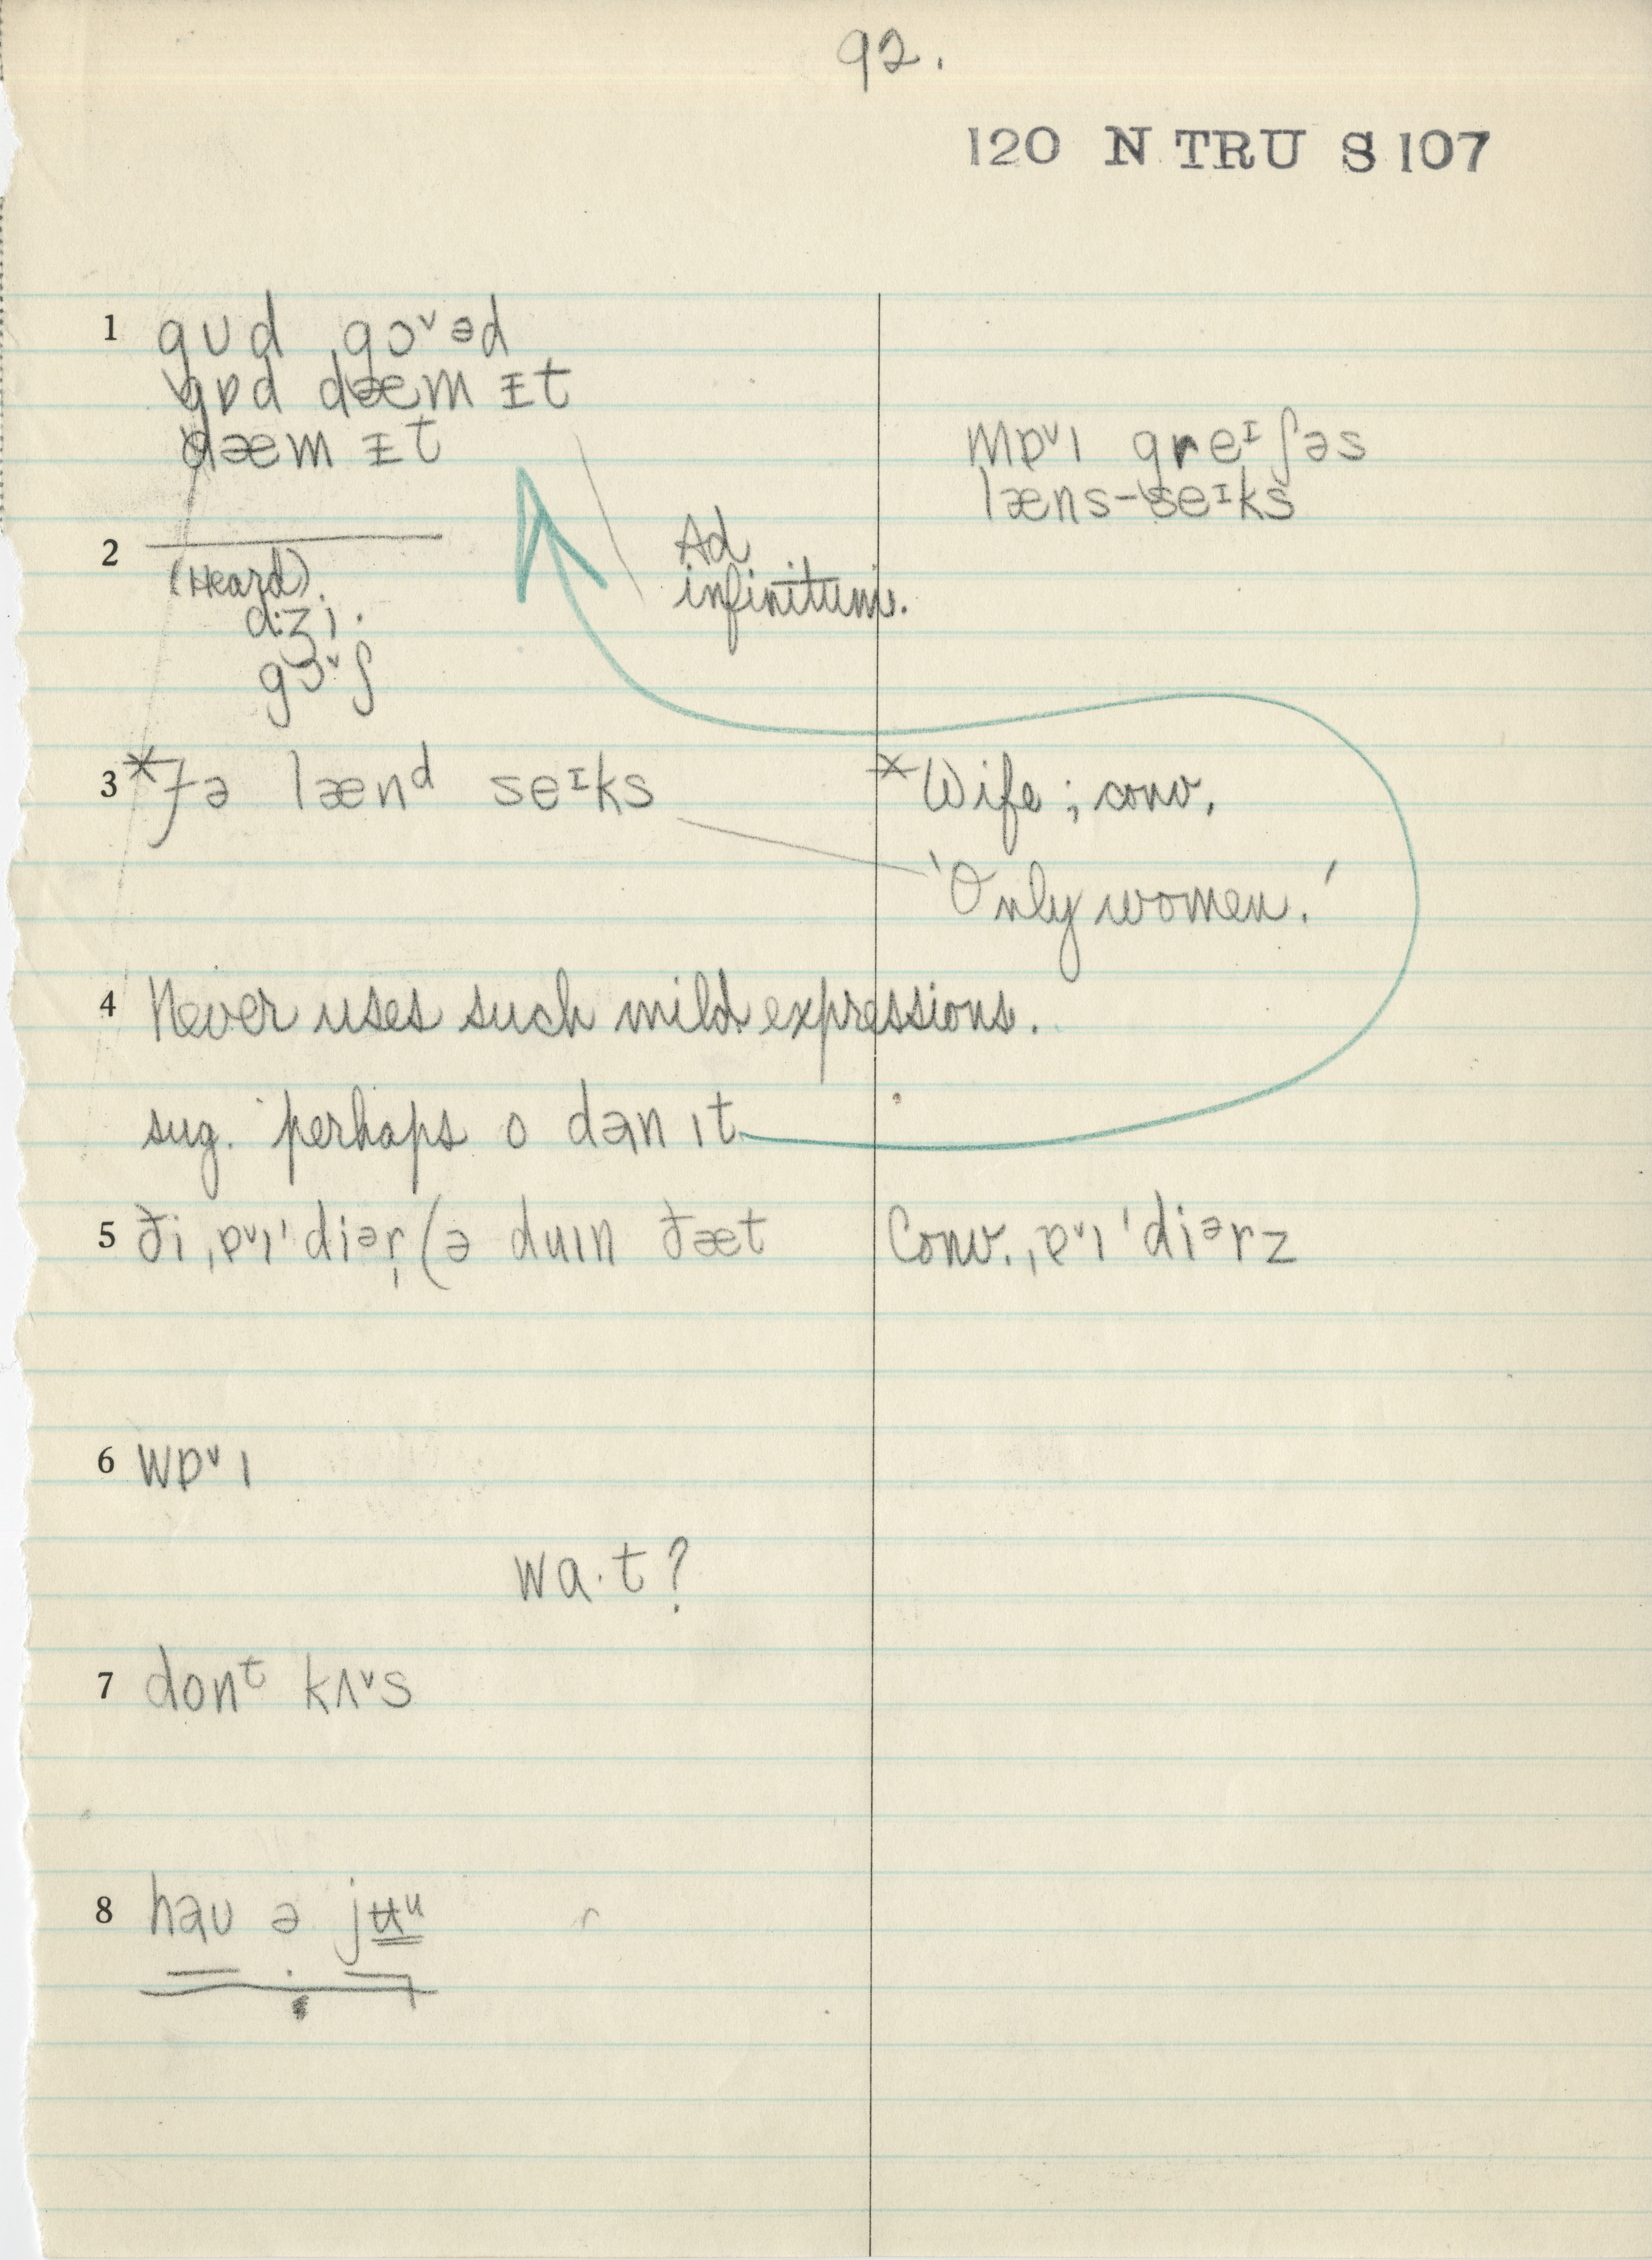 92.
120 N TRU S 107
1 gʊd gɔᵛəd
gɒd dæm ɪt
dæm ɪt
mɒᵛɪ greᶦʃəs
læns-seᶦks
2
(Heard)
dʒi·
gɔᵛʃ
Ad
infinitum.
3 *fə lænᵈ seᶦks
*Wife; conv.
'Only women.'
4 Never uses such mild expressions.
sug. perhaps o dən ɪt
5 ði ˌɐᵛɪˈdiᵊr̩ (ə duɪn ðæt
Conv. ˌɐᵛɪˈdiᵊrz
6 wɒᵛɪ
wa·t?
7 donᵗ kʌᵛs
8 həʊ ə jʉᵘ
r